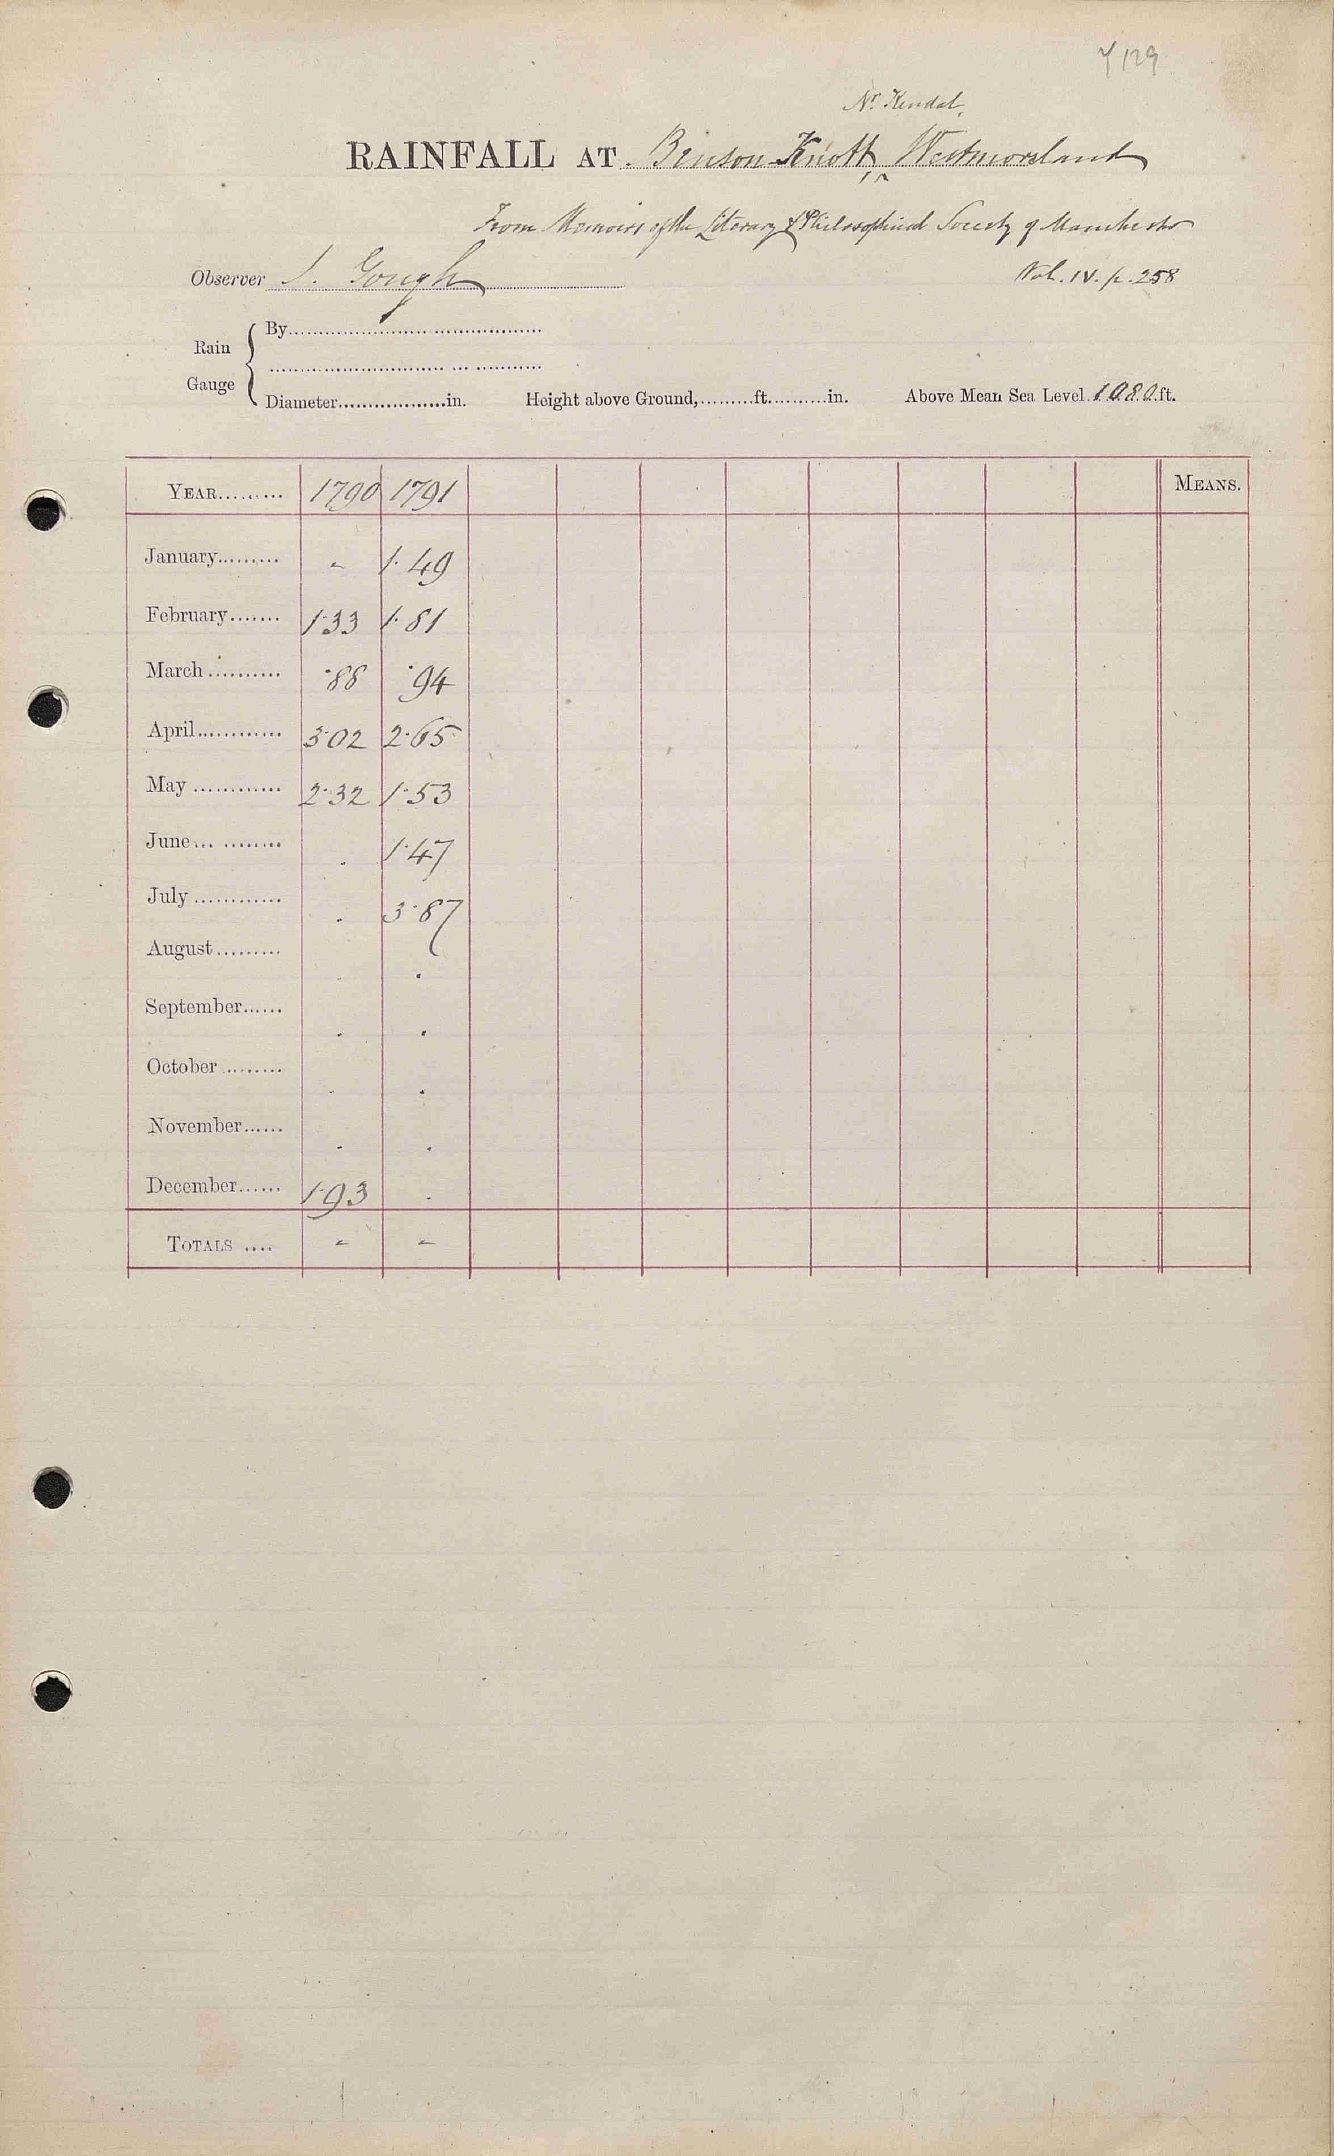 7/129
Nr. Kendal,
RAINFALL AT Benson Knott, Westmoreland
From Memoirs of the Literary & Philosophical Society of Manchester
Observer J. Gough Vol. IV. p. 258
By
Rain
Gauge
Diameter in. Height above Ground, ft. in. Above Mean Sea Level 1080 ft.
YEAR 1790 1791 MEANS.
January - 1.49
February 1.33 1.81
March .88 .94
April 3.02 2.65
May 2.32 1.53
June . 1.47
July . 3.87
August . .
September . .
October . .
November . .
December 1.93 .
TOTALS - -